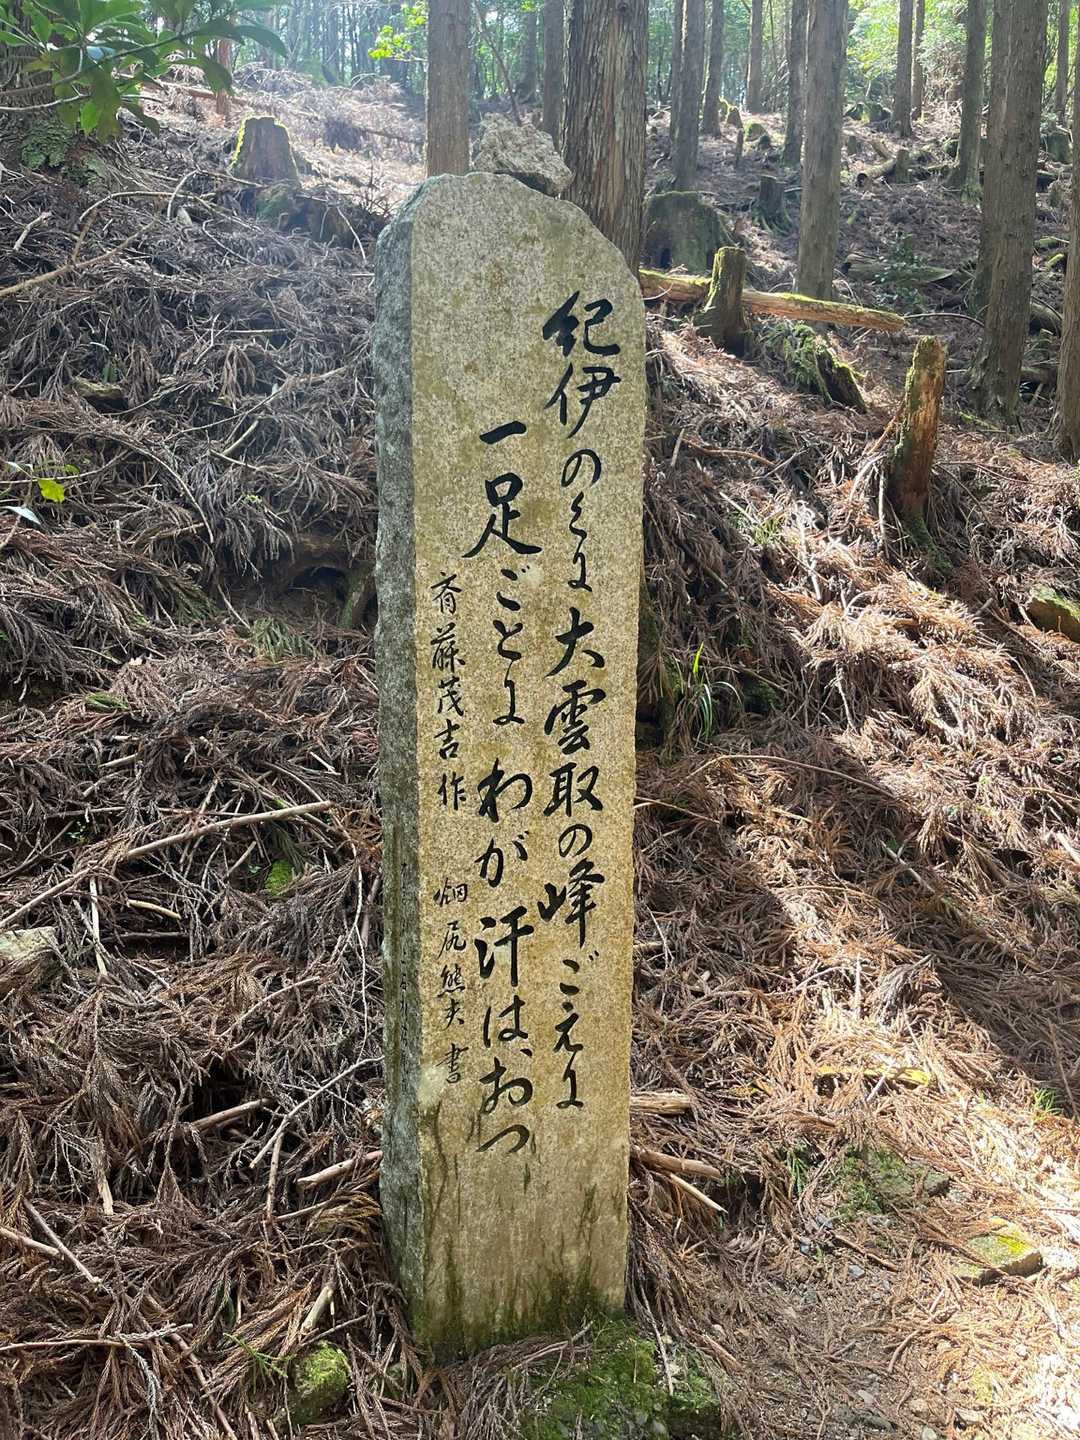 紀伊のくに大雲取の峰ごえに
一足ごとにわが汗は、おつ
斎藤茂吉作 畑尻熊夫 書